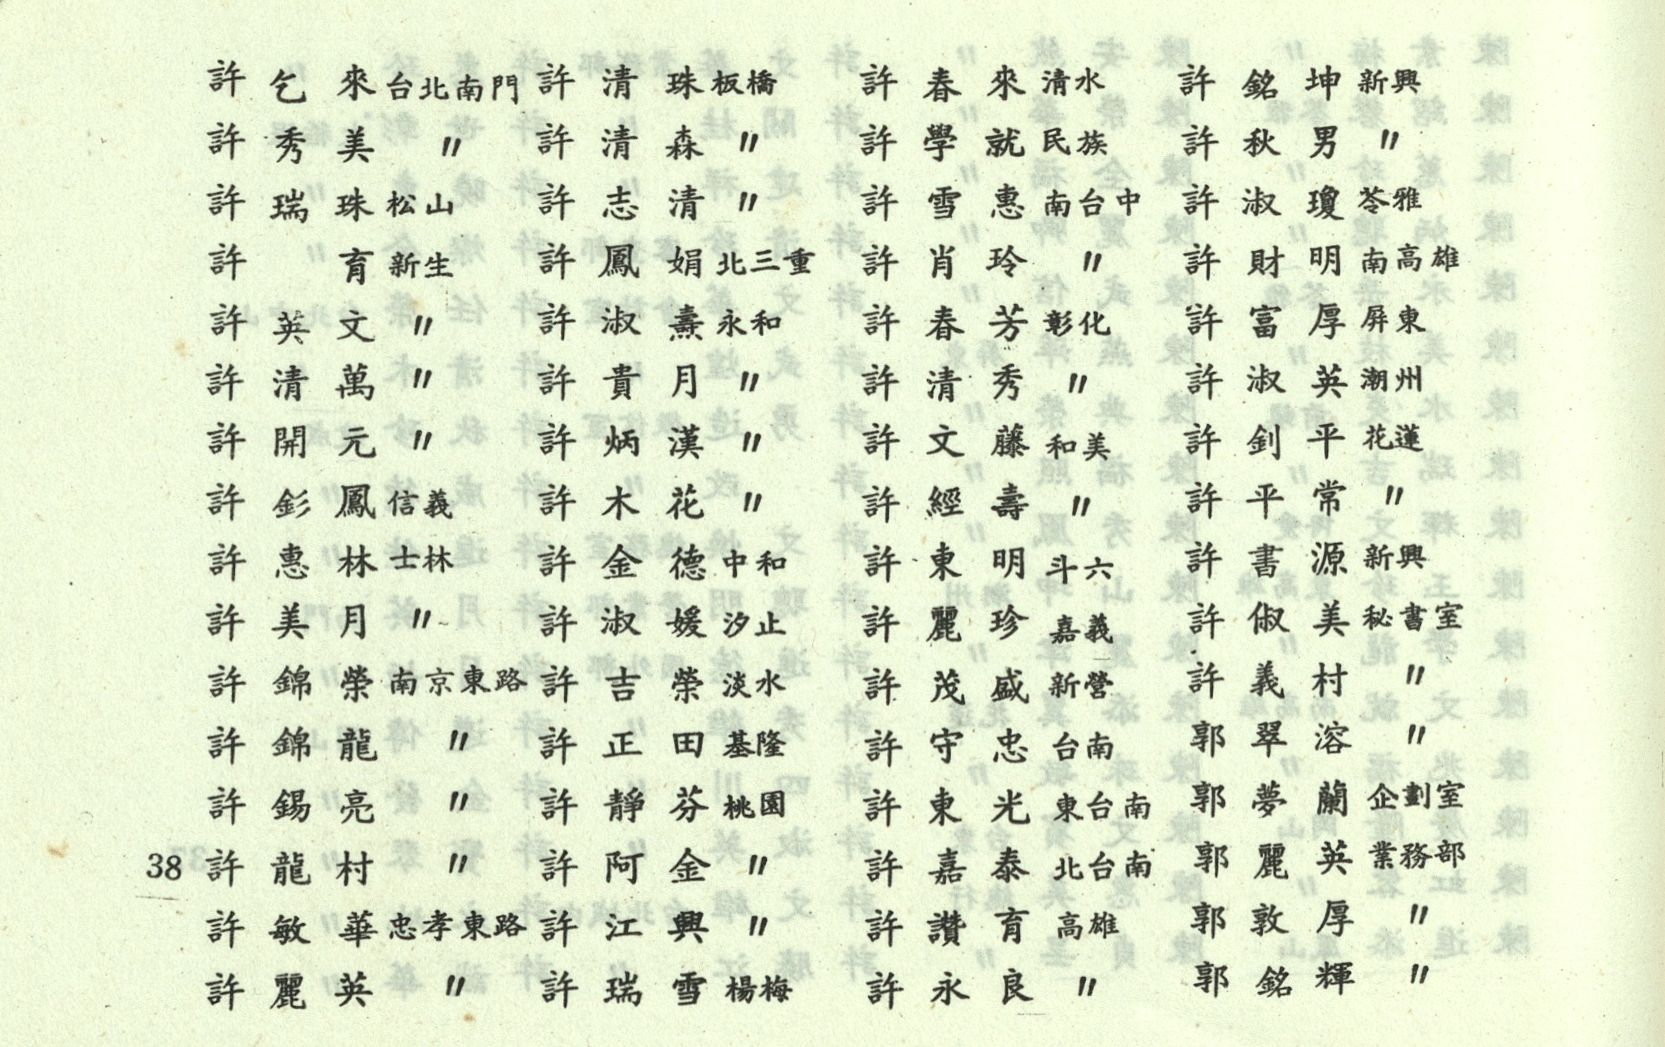 許乞來台北南門
許秀美〃
許瑞珠松山
許育新生
許英文〃
許清萬〃
許開元〃
許彭鳳信義
許惠林士林
許美月〃
許錦榮南京東路
許錦龍〃
許錫亮〃
許龍村〃
許敏華忠孝東路
許麗英〃
許清珠板橋
許清森〃
許志清〃
許鳳娟北三重
許淑燾永和
許貴月〃
許炳漢〃
許木花〃
許金德中和
許淑媛汐止
許吉榮淡水
許正田基隆
許靜芬桃園
許阿金〃
許江興〃
許瑞雪楊梅
許春來清水
許學就民族
許雪惠南台中
許肖玲〃
許春芳彰化
許清秀〃
許文藤和美
許經壽〃
許東明斗六
許麗珍嘉義
許茂盛新營
許守忠台南
許東光東台南
許嘉泰北台南
許讚育高雄
許永良〃
許銘坤新興
許秋男〃
許淑瓊苓雅
許財明南高雄
許富厚屏東
許淑英潮州
許釗平花蓮
許平常〃
許書源新興
許俶美秘書室
許義村〃
郭翠溶〃
郭夢蘭企劃室
郭麗英業務部
郭敦厚〃
郭銘輝〃
38